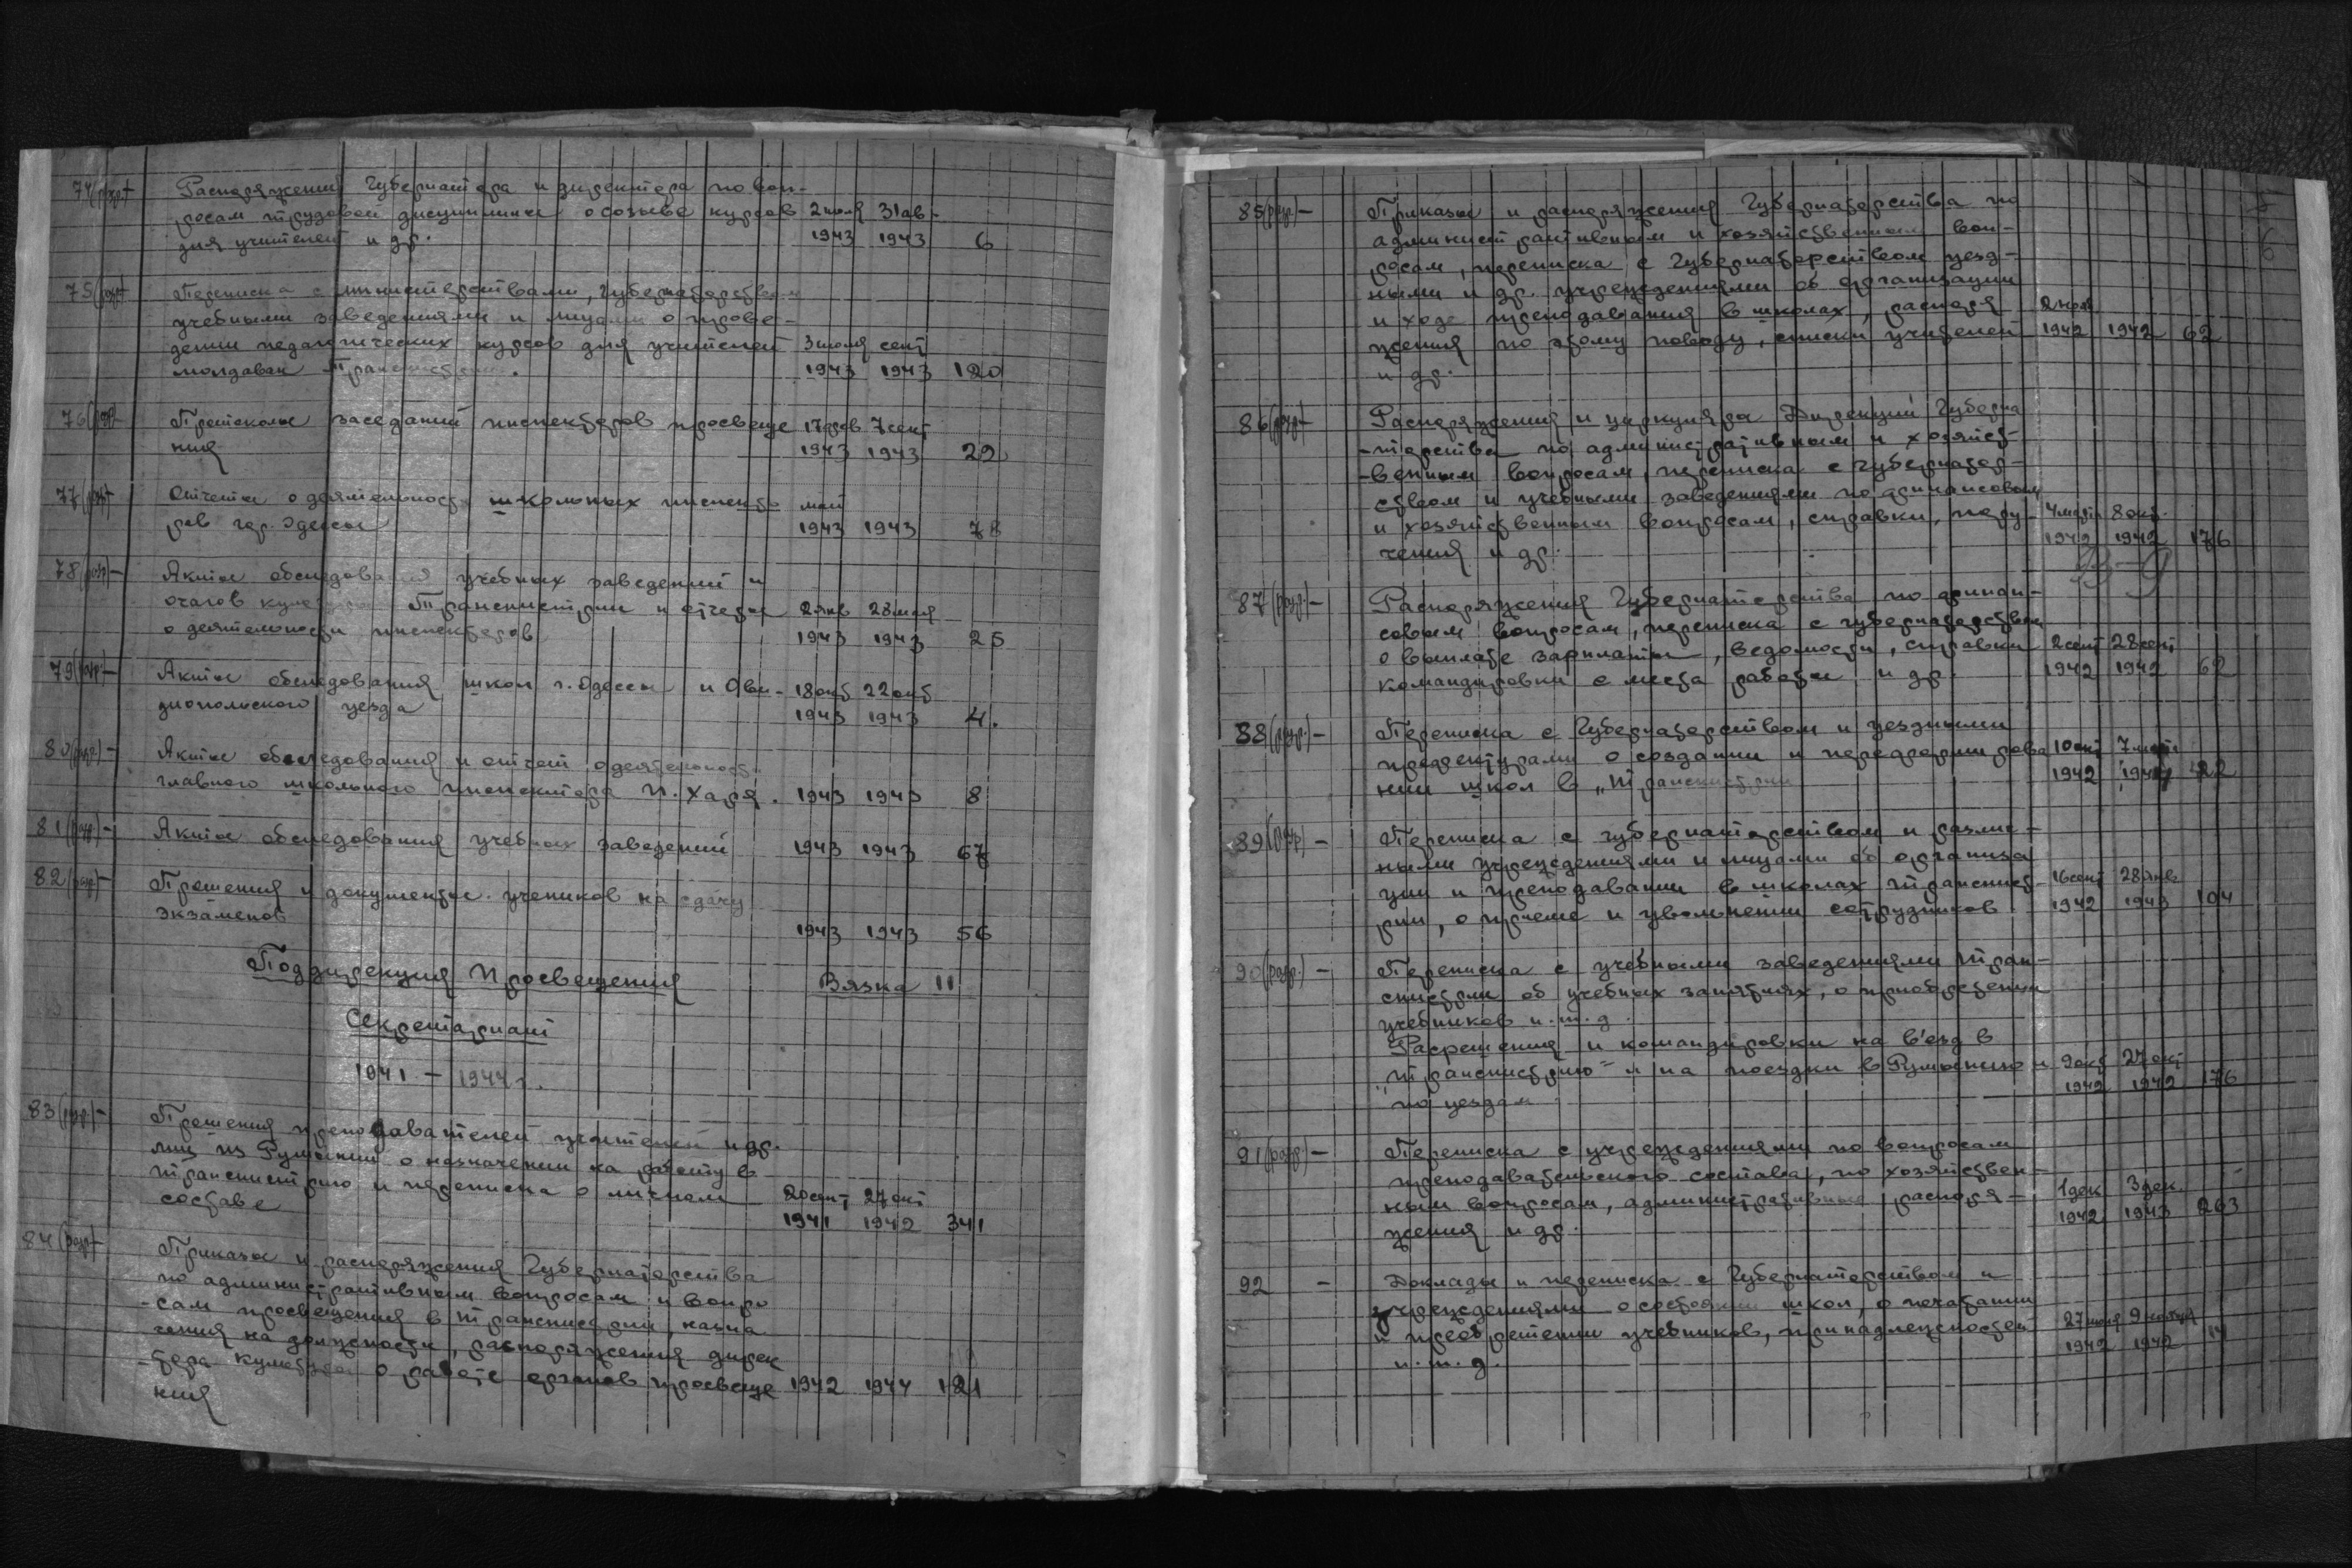 74(разр.)- Распоряжения Губернатора и директора по воп-
росам трудовой дисциплины о созыве курсов 2 июля 31 ав-
для учителей и др. 1943 1943 6
75(разр)- Переписка с министерствами, Губернаторством
учебными заведениями и лицами о прове-
дении педагогических курсов для учителей 3 июля сент
молдаван 1943 1943 120
76(разр)- Протоколы заседаний инспекторов просвеще 17 фев 7 сент
ния 1943 1943 22
77(разр)- Отчеты о деятельности школьных инспекто май
ров гор. Одессы 1943 1943 78
78(разр)- Акты обследования учебных заведений и
очагов культуры Транснистрии и отчеты 2 янв 28 июля
о деятельности инспекторов 1943 1943 25
79(разр.)- Акты обследования школ г. Одессы и Ови- 18 окт 22 окт
диопольского уезда 1943 1943 4.
80(разр.)- Акты обследования и отчет о деятельности
главного школьного инспектора П. Харя. 1943 1943 8
81(разр)- Акты обследования учебных заведений 1943 1943 67
82(разр)- Прошения и документы учеников на сдачу
экзаменов 1943 1943 56
Поддирекция Просвещения Вязка 11
Секретариат
1941 - 1944 г.
83(разр.)- Прошения преподавателей учителей и др.
лиц из Румынии о назначении на работу в
транснистрию и переписка о личном 20 сент 27 окт
составе 1941 1942 341
84(разр)- Приказы и распоряжения Губернаторства
по административным вопросам и вопро
-сам просвещения в транснистрии, назна
чения на должности, распоряжения дирек
-тора культуры о работе органов просвеще 1942 1944 121
ния
85(разр)- Приказы и распоряжения Губернаторства по
административным и хозяйственным воп-
росам, переписка с Губернаторством уезд-
ными и др. учреждениями об организации
и ходе преподавания в школах, распоря 2
жения по этому поводу, списки учителей 1942 1942 62
и др.
86(разр)- Распоряжения и циркуляра Дирекций Губерна
-торства по административным и хозяйст-
-венным вопросам, переписка с губернатор-
ством и учебными заведениями по финансовым
и хозяйственным вопросам, справки, пору- 4 8 окт.
чения и др. 1942 1942 176
87(разр.)- Распоряжения Губернаторства по финан-
совым вопросам, переписка с губернаторством
о выплате зарплаты, ведомости, справки 2 сент 28 сент
командировки с места работы и др. 1942 1942 62
88(разр.)- Переписка с Губернаторством и уездными
префектурами о создании и переформирова 10 окт 7
нии школ в „транснистрии 1942 422
89(разр)- Переписка с губернаторством и различ-
ными учреждениями и лицами об организа
ции и преподавании в школах транснист- 16 сент 28 янв
рии, о приеме и увольнении сотрудников. 1942 1943 104
90(разр.)- Переписка с учебными заведениями тран-
снистрии об учебных занятиях, о приобретении
учебников и.т.д.
Разрешения и командировки на в'езд в
„транснистрию" и на поездки в Румынию и 9 окт 27 окт
по уездам 1942 1942 176
91(разр)- Переписка с учреждениями по вопросам
преподавательского состава, по хозяйствен-
ным вопросам, административные распоря- 1 дек 3 дек.
жения и др. 1942 1943 263
92 - Доклады и переписка с Губернаторством и
учреждениями о состоянии школ, о печатании
и приобретении учебников, принадлежностей 27 июля 9 октября
и.т.д. 1942 1942 14